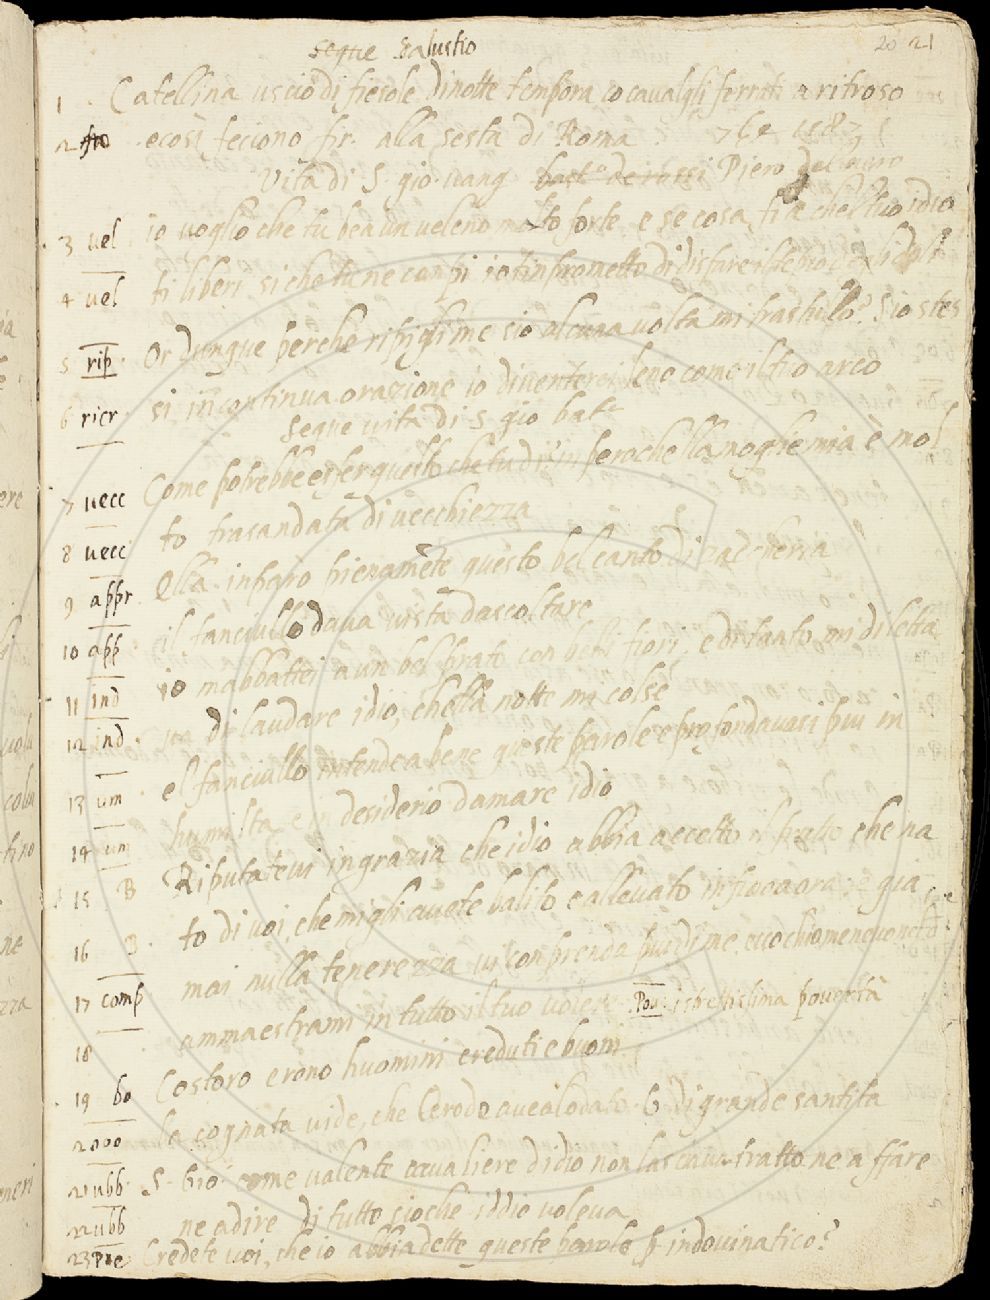 segue Salustio
20 21
1 Catellina uscio di fiesole dinotte tempora co cavalgli ferrati a ritroso
2 ecosi feciono fir. alla sesta di Roma
Vita di S. giovang Piero del nero
3 vel io voglio che tu bea un veleno molto forte e se cosa fia chel tuo idio
4 vel ti liberi si che tu ne campi io tinprometto di disfare
5 rip Or dunque perche ripigli me sio alcuna volta mi trastullo? Sio stes
6 ricr si in continua orazione io diventerei leve come il tio arco
segue vita di S. gio bat.
7 vecc Come potrebbe esser questo che tu di, in peroche lla moglie mia è mol
8 vecc to trasandata di vecchiezza
9 appr Ella inparo pienamēte questo bel canto di zaccheria
10 app il fanciullo dava vista dascoltare
11 ind io mabbattei a un bel prato con belli fiori, e di tanto mi diletta
12 ind va di laudare idio, chella notte mi colse
13 um el fanciullo intendea bene queste parole e profondavasi piu in
14 um humilta e in desiderio damare idio
15 B Riputatevi in grazia che idio abbia accetto il frutto che na
16 B to di voi, che mi gli avete balito e allevato infino a ora, e gia
17 comp mai nulla tenerezza vi conprenda piu di me
18 ammaestrami in tutto il tuo volere Pov. ispettissima povertà
19 bo Costoro erono huomini creduti e buoni
20 oo la cognata vide, che Erode avea lodato G. di grande santita
21 ubb S. Gio. come valente cavaliere didio non lasciava tratto ne a ffare
22 ubb ne a dire di tutto cioche iddio voleva
23 pre Credete voi, che io abbia dette queste parole p indovinatico?